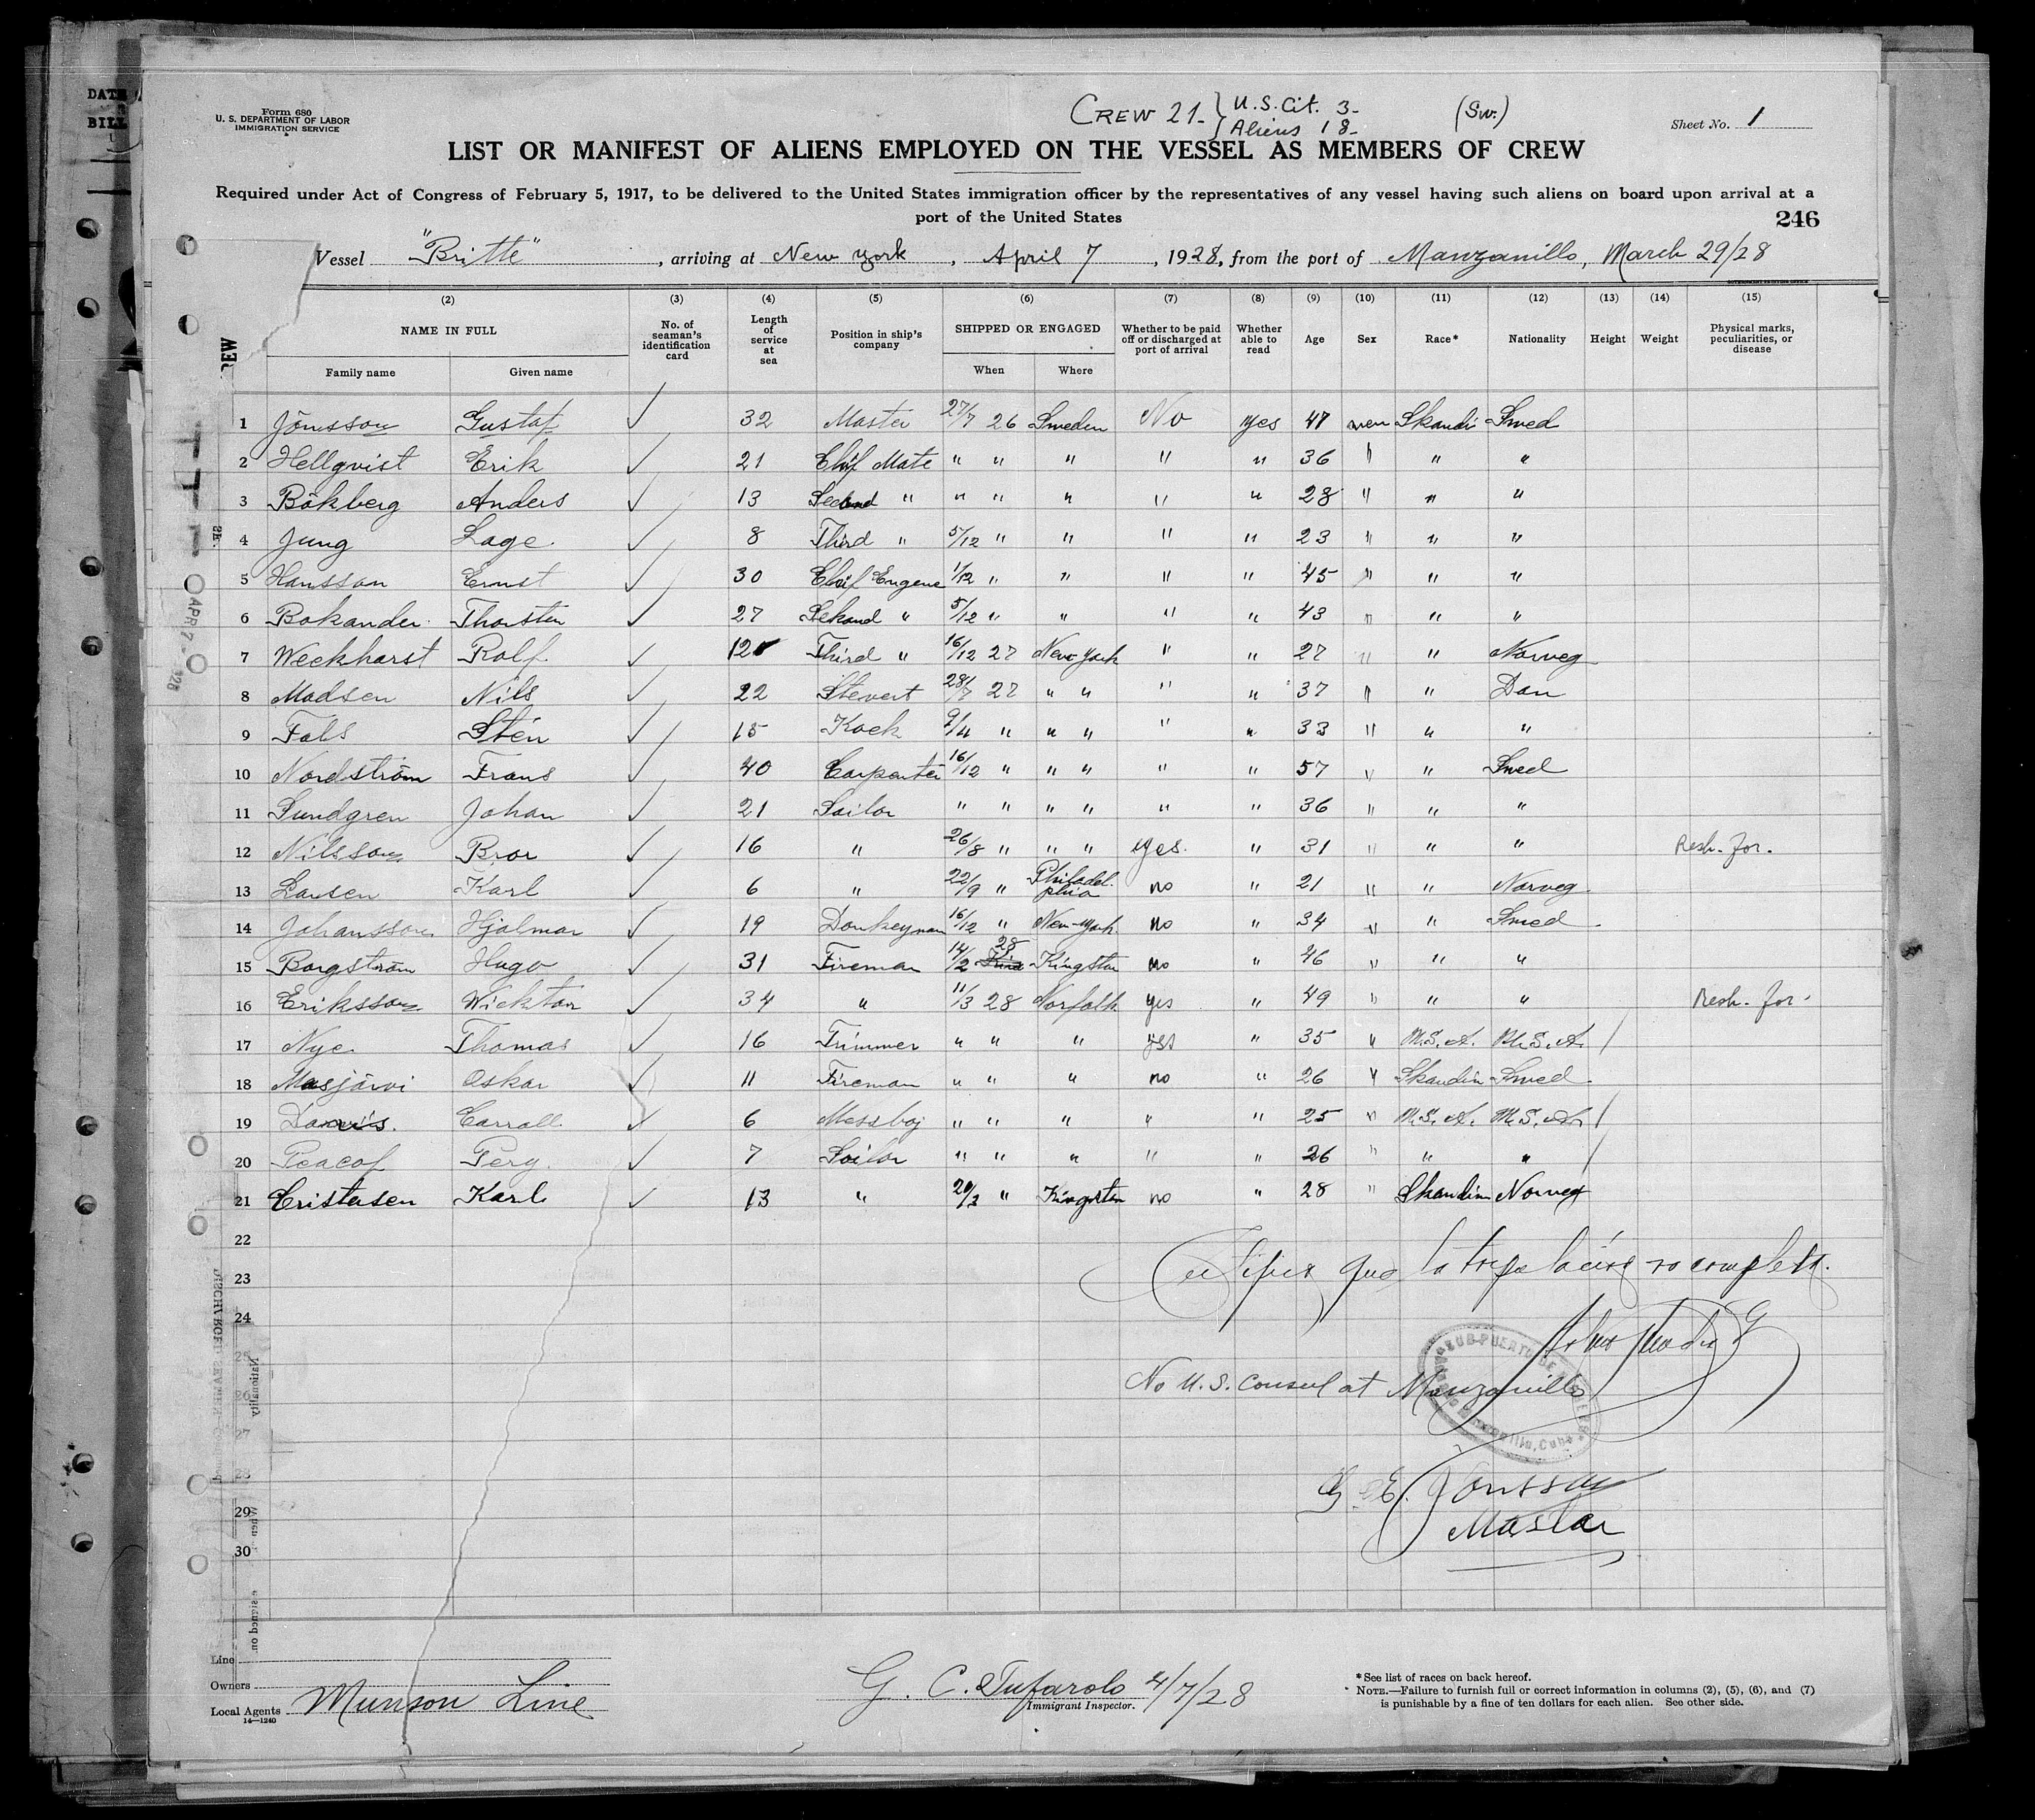 DATE
BILL
Form 680
U. S. DEPARTMENT OF LABOR
IMMIGRATION SERVICE
CREW 21- } U.S. Cit. 3-
Aliens 18-
(Sw.)
Sheet No. 1
LIST OR MANIFEST OF ALIENS EMPLOYED ON THE VESSEL AS MEMBERS OF CREW
Required under Act of Congress of February 5, 1917, to be delivered to the United States immigration officer by the representatives of any vessel having such aliens on board upon arrival at a
port of the United States
246
Vessel "Britte", arriving at New York, April 7, 1928, from the port of Manzanillo, March 29/28
(2) (3) (4) (5) (6) (7) (8) (9) (10) (11) (12) (13) (14) (15)
NAME IN FULL
Family name Given name
No. of seaman's identification card
Length of service at sea
Position in ship's company
SHIPPED OR ENGAGED
When Where
Whether to be paid off or discharged at port of arrival
Whether able to read
Age Sex Race* Nationality Height Weight
Physical marks, peculiarities, or disease
1 Jönsson Gustaf ✓ 32 Master 27/7 26 Sweden No yes 47 men Skandi Swed
2 Hellqvist Erik ✓ 21 Chif Mate " " " " " 36 " " "
3 Bökberg Anders ✓ 13 Second " " " " " " 28 " " "
4 Jung Lage ✓ 8 Third " 5/12 " " " " 23 " " "
5 Hansson Ernst ✓ 30 Chif Engene 1/12 " " " " 45 " " "
6 Bokander Thorsten ✓ 27 Sekond " 5/12 " " " " 43 " " "
7 Weckharst Rolf ✓ 12 Third " 16/12 27 New York " " 27 " " Norveg
8 Madsen Nils ✓ 22 Stevert 28/7 27 " " " " 37 " " Dan
9 Fals Stén ✓ 15 Kock 9/4 " " " " " 33 " " "
10 Nordström Frans ✓ 40 Carpenter 16/12 " " " " " 57 " " Swed
11 Sundgren Johan ✓ 21 Sailor " " " " " " 36 " " "
12 Nilsson Bror ✓ 16 " 26/8 " " " yes. " 31 " " " Resh. for.
13 Lansen Karl ✓ 6 " 22/9 " Philadelphia no " 21 " " Norveg.
14 Johansson Hjalmar ✓ 19 Donkeyman 16/12 " New-York. no " 34 " " Swed
15 Borgström Hugo ✓ 31 Fireman 14/2 28 Kingston no " 46 " " "
16 Eriksson Wicktor ✓ 34 " 11/3 28 Norfolk yes " 49 " " " Resh. for.
17 Nye Thomas ✓ 16 Trimmer " " " yes " 35 " U.S.A. U.S.A. /
18 Masjärvi Oskar ✓ 11 Fireman " " " no " 26 " Skandin Swed.
19 Davis. Carroll ✓ 6 Messboj " " " " " 25 " U.S.A. U.S.A. /
20 Peacof Perg. ✓ 7 Sailor " " " " " 26 " " " /
21 Cristensen Karl ✓ 13 " 20/3 " Kingston no " 28 " Skandin Norveg
22
23
24
25
26
27
28
29
30
No U.S. Consul at Manzanillo
G. E. Jönsson
Master
APR 7 - 1928
Nationality
When
Line
Owners
Local Agents Munson Line
14—1240
G. C. Tufarolo 4/7/28
Immigrant Inspector.
*See list of races on back hereof.
NOTE.—Failure to furnish full or correct information in columns (2), (5), (6), and (7)
is punishable by a fine of ten dollars for each alien. See other side.